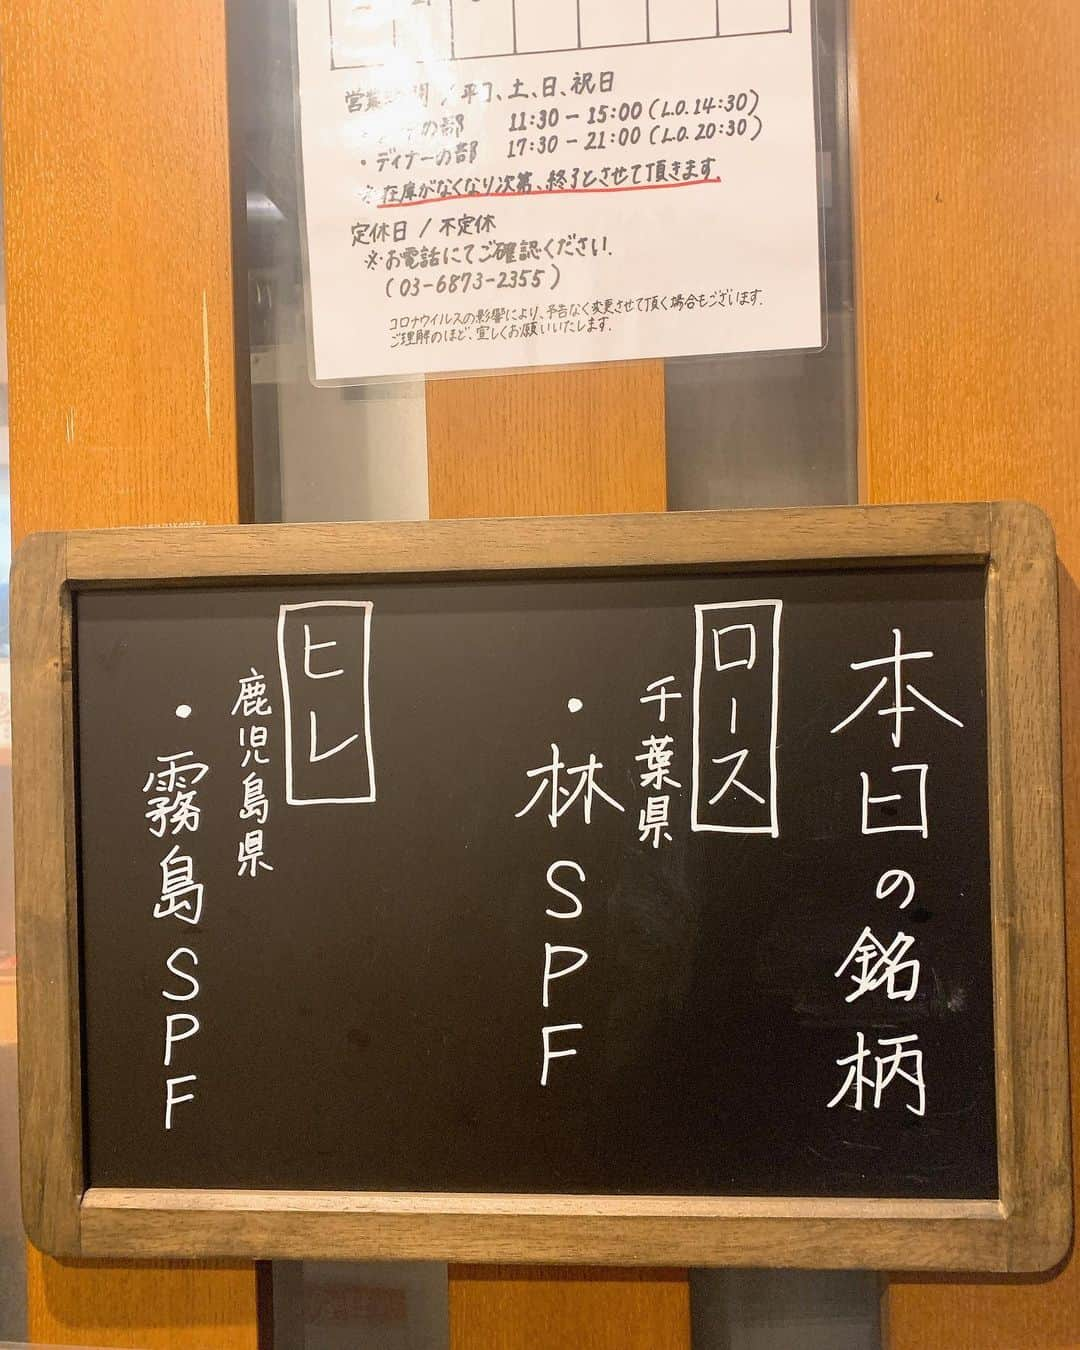 営業時間 / 平日、土、日、祝日
の部 11:30 - 15:00 (L.O.14:30)
・ディナーの部 17:30 - 21:00 (L.O.20:30)
※在庫がなくなり次第、終了とさせて頂きます.
定休日 / 不定休
※お電話にてご確認ください.
(03-6873-2355)
コロナウイルスの影響により、予告なく変更させて頂く場合もございます.
ご理解のほど、宜しくお願いいたします.
本日の銘柄
ロース
千葉県
・林SPF
ヒレ
鹿児島県
・霧島SPF